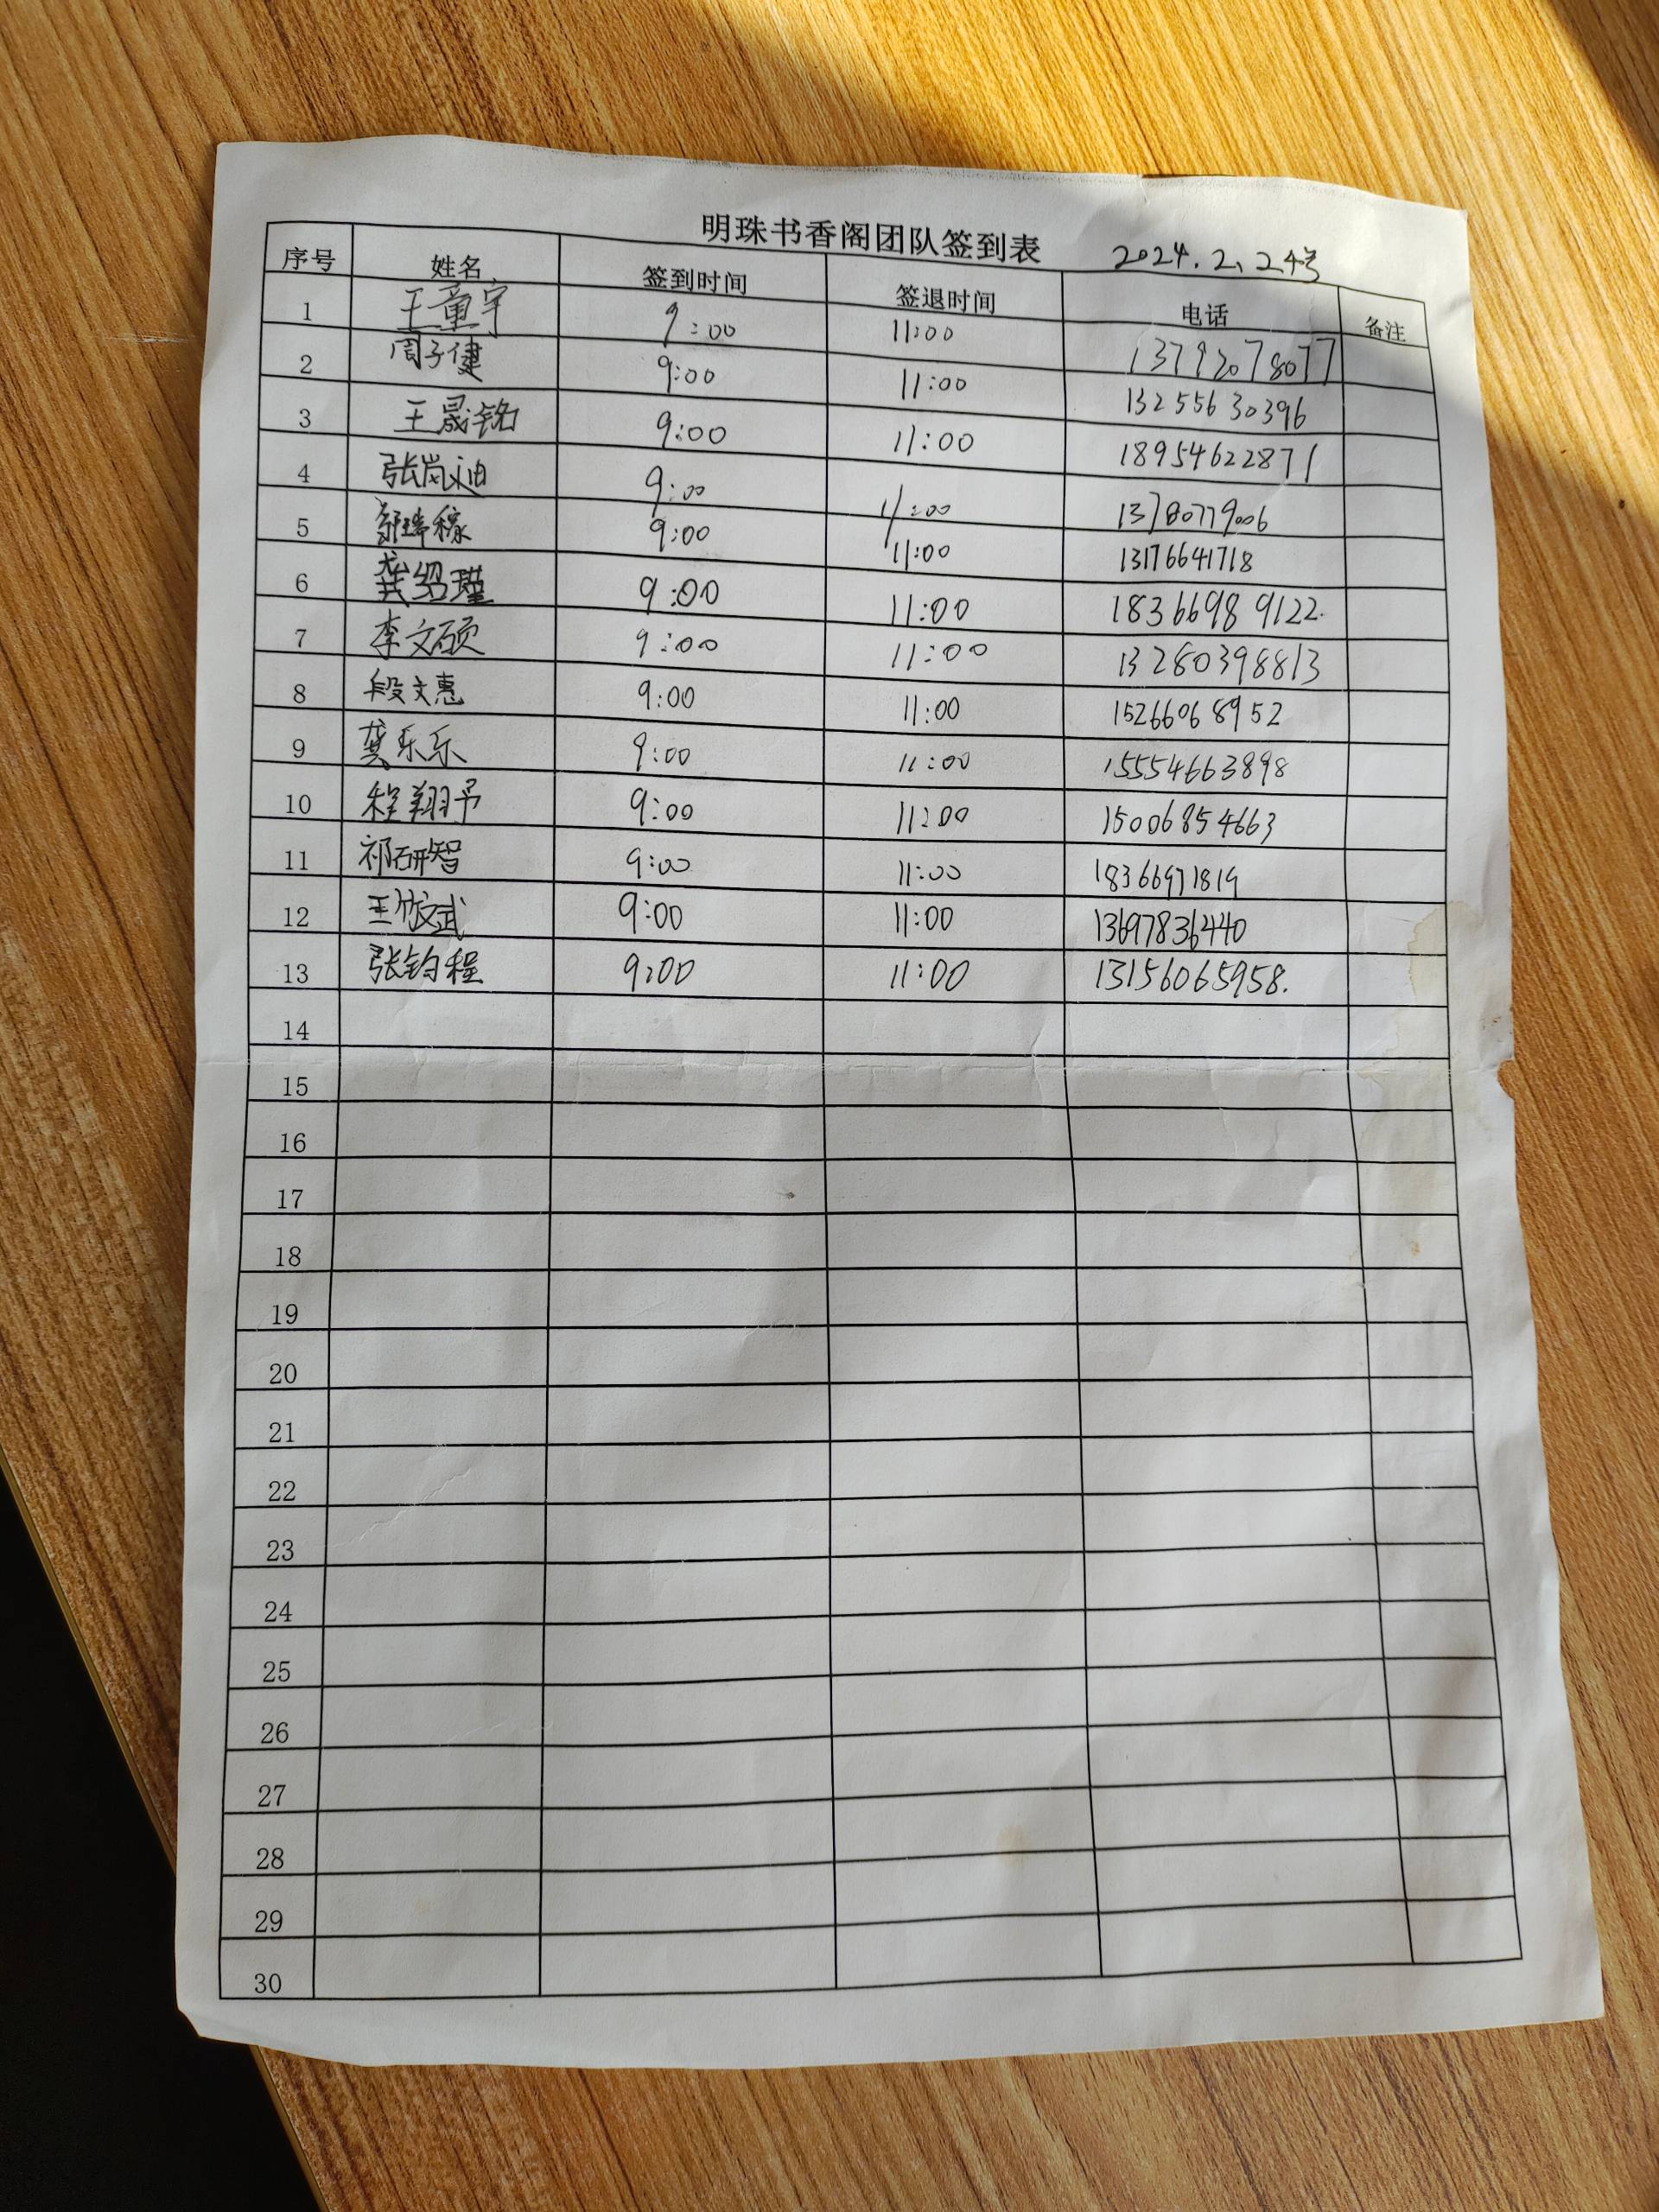 明珠书香阁团队签到表 2024.2、24号
序号 姓名 签到时间 签退时间 电话 备注
1 王童宇 9:00 11:00 13792078077
2 周子健 9:00 11:00 13255630396
3 王晟铭 9:00 11:00 18954622871
4 张岚迪 9:00 11:00 13780779006
5 9:00 11:00 13176641718
6 龚绍瑾 9:00 11:00 18366989122.
7 李文硕 9:00 11:00 13280398813
8 段文惠 9:00 11:00 15266068952
9 龚乐乐 9:00 11:00 15554663898
10 程翔予 9:00 11:00 15006854663
11 祁研智 9:00 11:00 18366971819
12 9:00 11:00 13697836440
13 张钧程 9:00 11:00 13156065958.
14
15
16
17
18
19
20
21
22
23
24
25
26
27
28
29
30